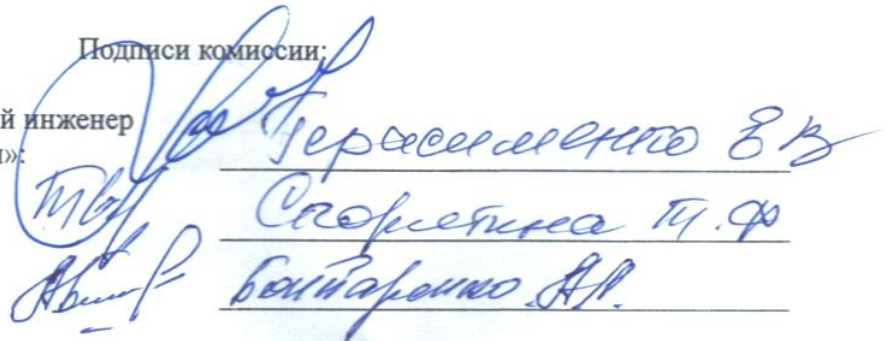 Подписи комиссии:
й инженер
»:
Герасименко Е В
Т.Ф
Бонтаренко А.Л.